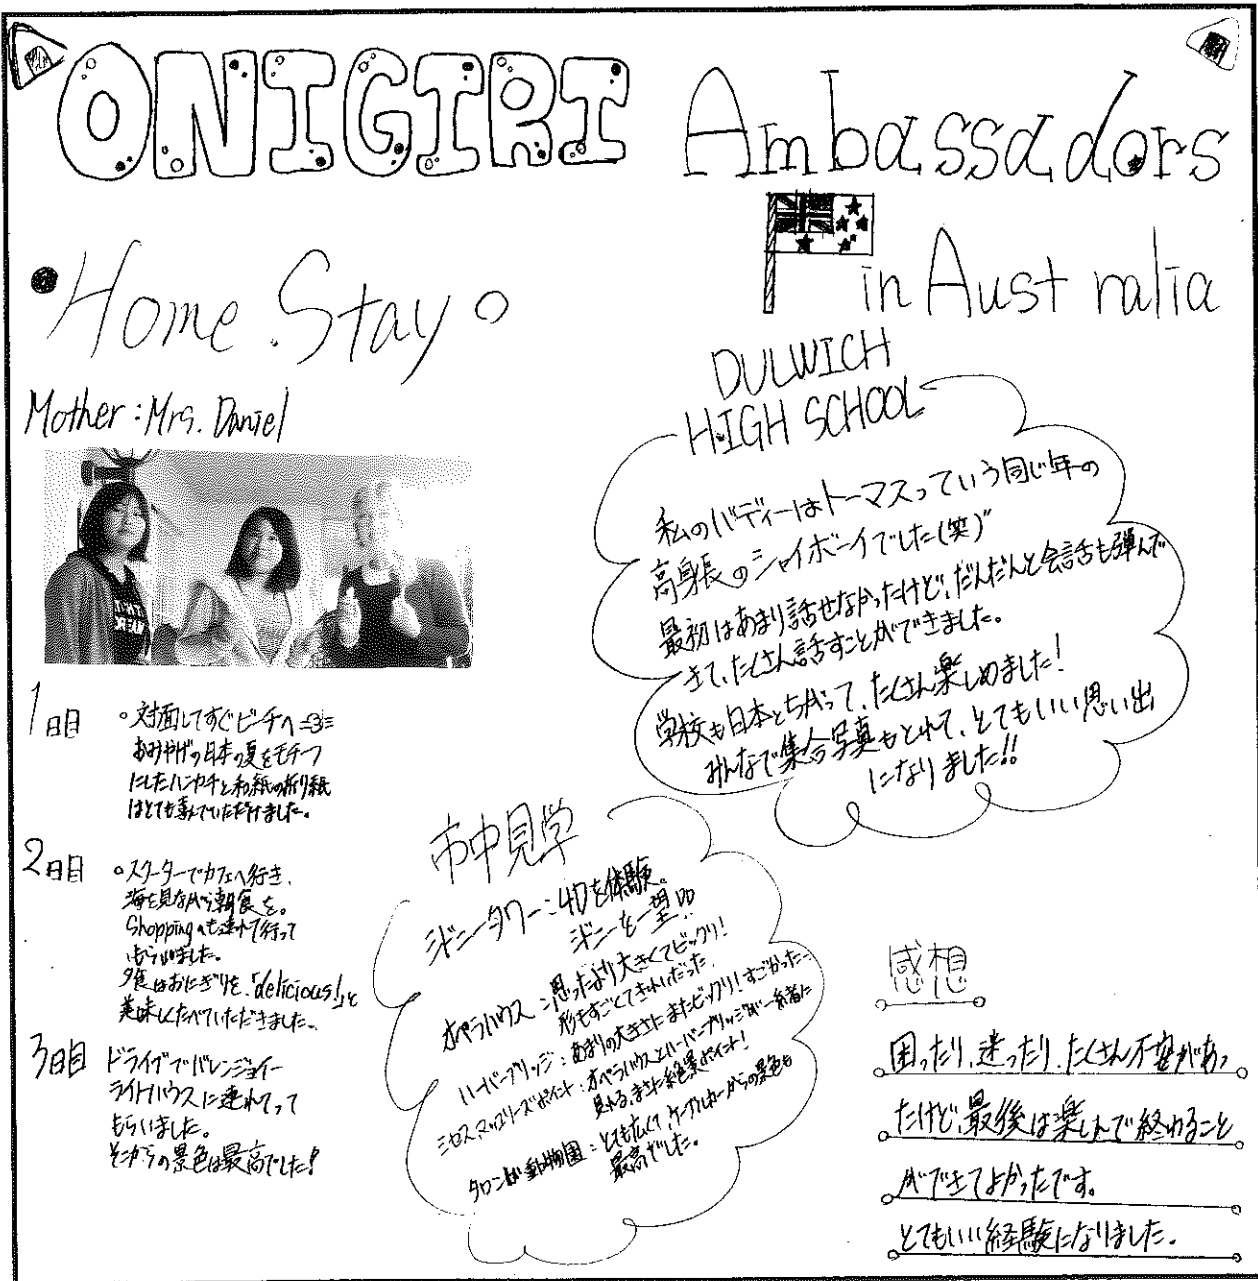 ONIGIRI Ambassadors
in Australia
Home Stay
Mother : Mrs. Daniel
1日目
・対面してすぐビーチへ
おみやげの日本の夏をモチーフ
にしたハンカチと和紙の折り紙
はとても喜んでいただけました。
2日目
・スクーターでカフェへ行き、
海を見ながら朝食を。
Shoppingへも連れて行って
もらいました。
夕食はおにぎりを、「delicious!」と
美味しくたべていただきました。
3日目
ドライブでバレンジョイー
ライトハウスに連れてって
もらいました。
そこからの景色は最高でした!
DULWICH
HIGH SCHOOL
私のバディーはトーマスっていう同じ年の
高身長のシャイボーイでした(笑)
最初はあまり話せなかったけど、だんだんと会話も弾んで
きて、たくさん話すことができました。
学校も日本とちがって、たくさん楽しめました!
みんなで集合写真もとれて、とてもいい思い出
になりました!!
市中見学
シドニータワー:4Dを体験。
シドニーを一望
オペラハウス:思ったより大きくてビックリ!
形もすごくてきれいだった
ハーバーブリッジ:あまりの大きさにまたビックリ!すごかったー
ミセスマッコリーズポイント:オペラハウスとハーバーブリッジが一緒に
見れる、まさに絶景ポイント!
タロンガ動物園:とても広くて、ケーブルカーからの景色も
最高でした。
感想
困ったり、迷ったり、たくさん不安があっ
たけど、最後は楽しんで終わること
ができてよかったです。
とてもいい経験になりました。